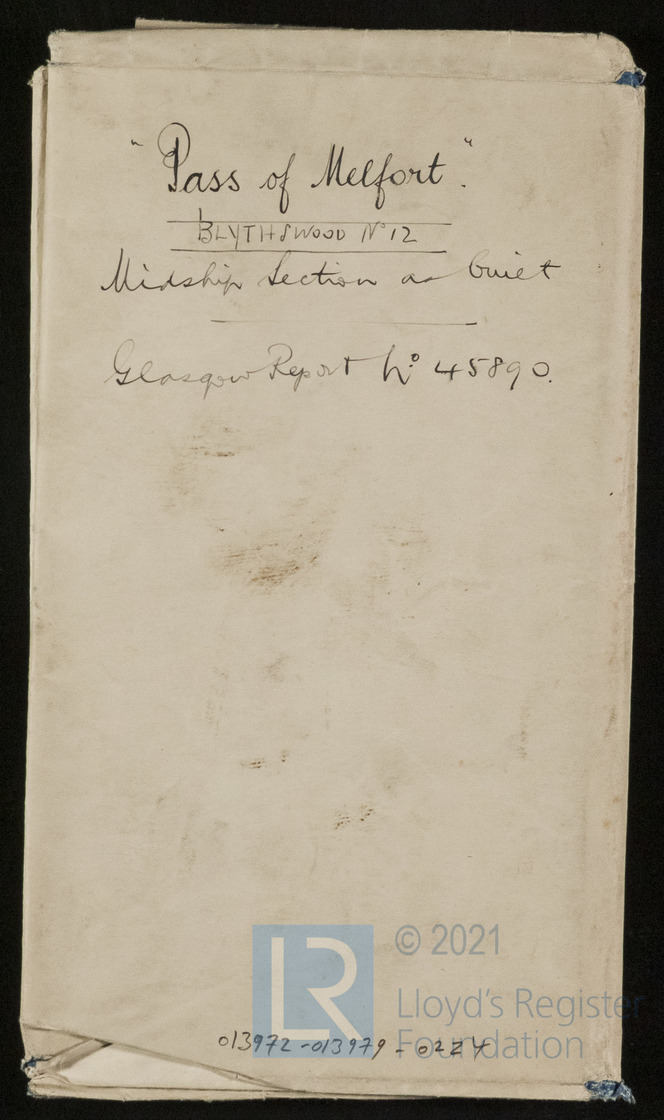 "Pass of Melfort".
BLYTHSWOOD Nº 12
Midship Section as built
Glasgow Report Nº 45890.
LR
© 2021
Lloyd's Register
Foundation
013972-013979-0224